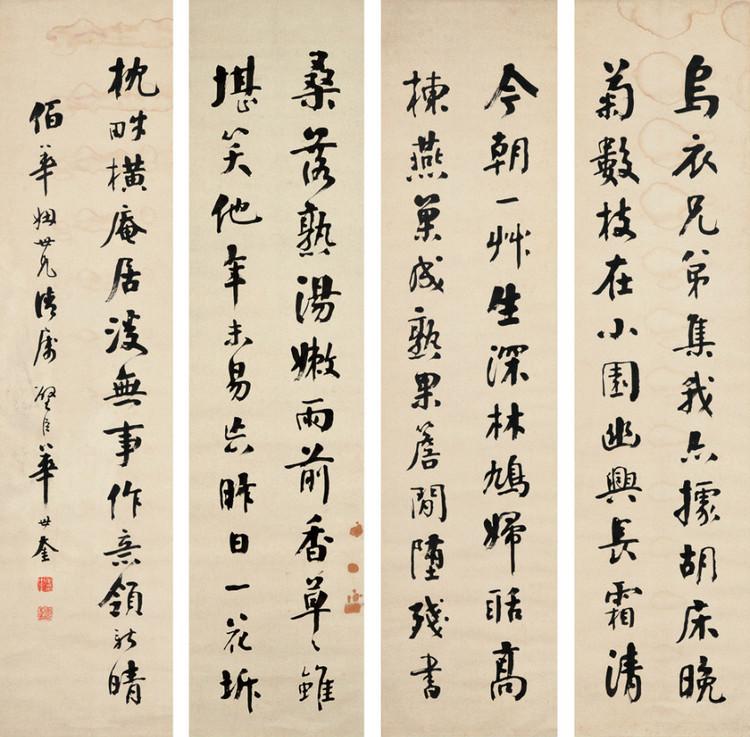 烏衣兄弟集我亦據胡床晚
菊數枝在小園幽興長霜清
今朝一艸生深林鳩婦聒高
棟燕巢成熟果簷間墮殘書
桑落熟湯嫩雨前香草々雖
堪笑他年未易忘昨日一花坼
枕畔橫庵居無事作意領新晴
佰華姻世兄清屬 璧臣華世奎